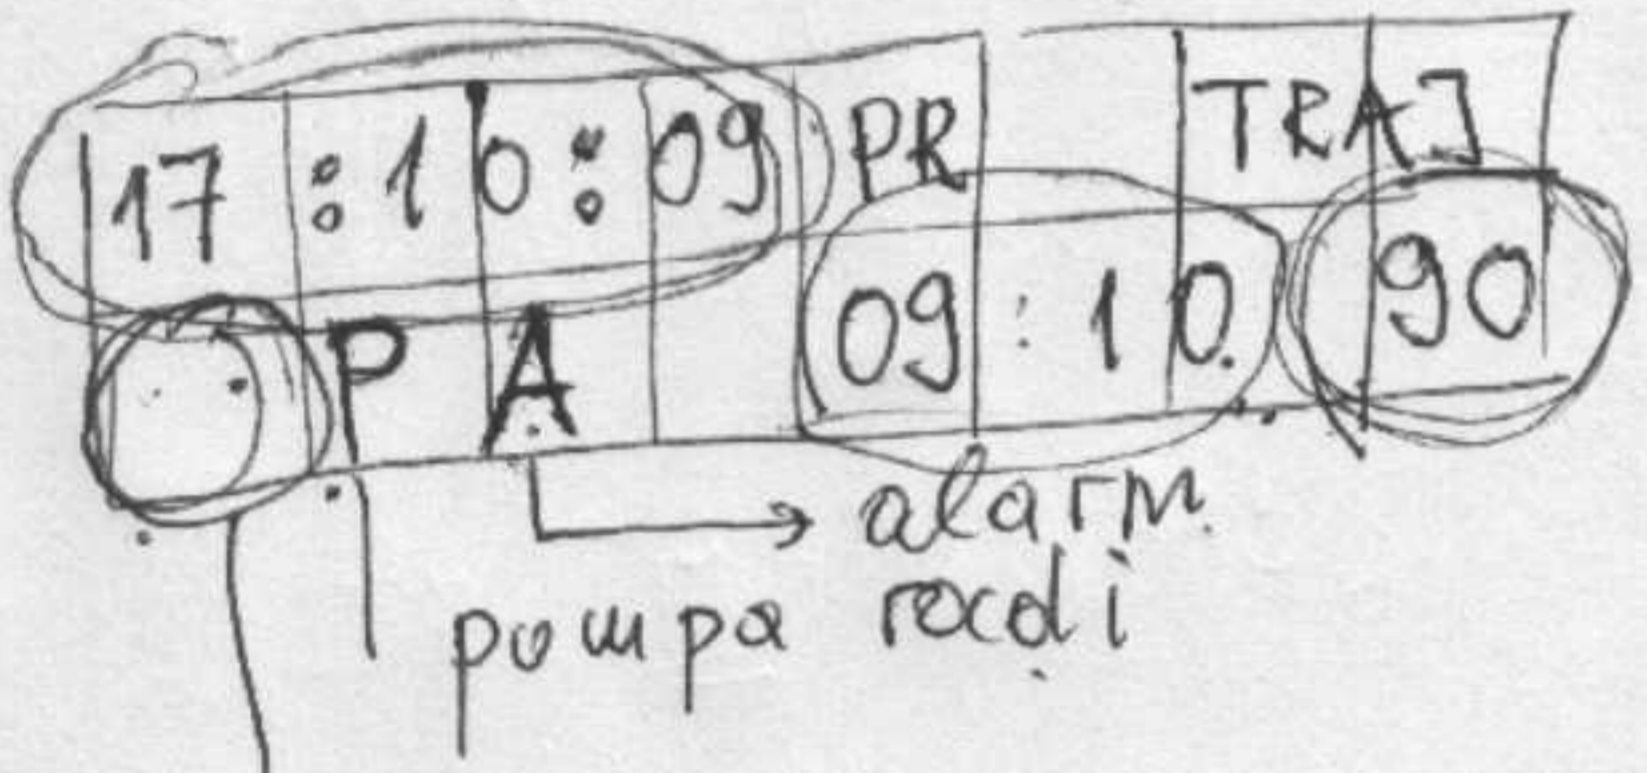 17:10:09 PR TRAJ
P A 09:10 90
alarm
pumpa radi